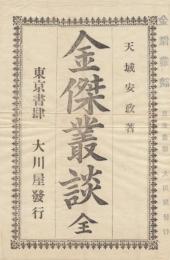 天城安政著
金傑叢談 全
東京書肆 大川屋發行